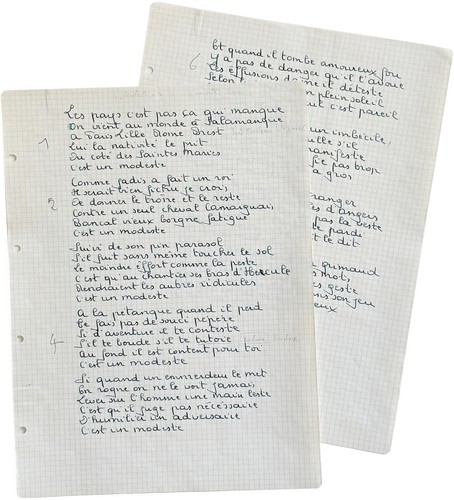 Les pays c'est pas ça qui manque
On vient au monde à Salamanque
A Paris Lille Rome Brest
1 Lui la nativité le prit
Du coté des Saintes Maries
C'est un modeste
Comme jadis a fait un roi
Il serait bien fichu je crois
2 De donner le trône et le reste
Contre un seul cheval Camarguais,
Bancal vieux borgne fatigué
C'est un modeste
Suivi de son pin parasol
S'il fuit sans même toucher le sol
Le moindre effort comme la peste
C'est qu'au chantier ses bras d'Hercule
Rendraient les autres ridicules
C'est un modeste
A la petanque quand il perd
Te fais pas de souci pépère
Si d'aventure il te conteste
4 S'il te boude s'il te
Au fond il est content pour toi
C'est un modeste
Si quand un emmerdeur le met
En rogne on ne le voit jamais
Lever sur l'homme une main leste
C'est qu'il juge pas nécessaire
D'humilier un adversaire
C'est un modeste
Et quand il tombe amoureux fou
6 Y a pas de danger qu'il l'avoue
Les effusions dame il déteste
Selon
plein soleil
c'est pareil
un imbécile,
s'il
manifeste
pas trop
gros
étranger
d'angers
pas la veste
pardi
et le dit
quimaud
mot,
geste
son jeu
eux